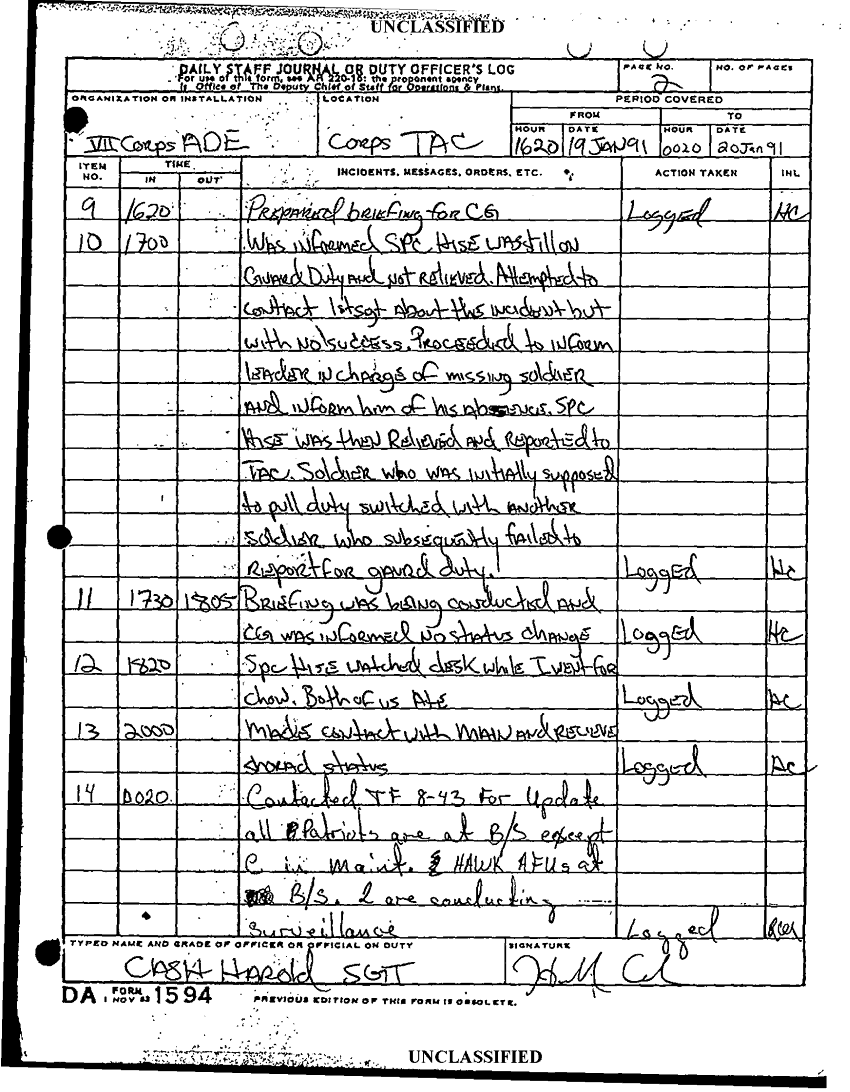 UNCLASSIFIED
DAILY STAFF JOURNAL OR DUTY OFFICER'S LOG
For use of this form, see AR 220-15; the proponent agency
is Office of The Deputy Chief of Staff for Operations & Plans.
PAGE NO.
2
NO. OF PAGES
ORGANIZATION OR INSTALLATION
VII Corps ADE
LOCATION
Corps TAC
PERIOD COVERED
FROM
TO
HOUR DATE HOUR DATE
1620 19 JAN 91 0020 20 Jan 91
ITEM NO.
TIME
IN OUT
INCIDENTS, MESSAGES, ORDERS, ETC.
ACTION TAKEN
INL
9 1620 Prepared briefing for CG Logged HC
10 1700 Was informed SPC Hise wastill on
Guard Duty and not relieved. Attempted to
contact 1stsgt about this incident but
with no success. Proceeded to inform
leader in charge of missing soldier
and inform him of his absence. SPC
Hise was then Relieved and reported to
TAC. Soldier who was initially supposed
to pull duty switched with another
soldier who subsequently failed to
report for gaurd duty. Logged HC
11 1730 1805 Briefing was being conducted and
CG was informed no status change Logged HC
12 1820 Spc Hise watched desk while I went for
chow. Both of us Ate Logged HC
13 2000 Made contact with MAIN and recieve
shorad status Logged HC
14 0020 Contacted TF 8-43 For Update
all Patriots are at B/S except
C in maint. HAWK AFUs at
B/S. 2 are conducting
Surveillance Logged
TYPED NAME AND GRADE OF OFFICER OR OFFICIAL ON DUTY
CASH HAROLD SGT
SIGNATURE
DA FORM 1 NOV 62 1594
PREVIOUS EDITION OF THIS FORM IS OBSOLETE.
UNCLASSIFIED